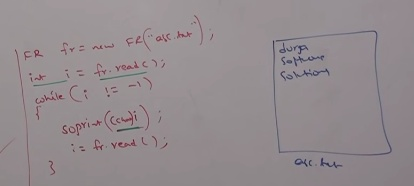 FR fr = new FR("abc.txt");
int i = fr.read();
while( i != -1)
{
soprint((char)i);
i = fr.read();
}
durga
software
solutions
abc.txt